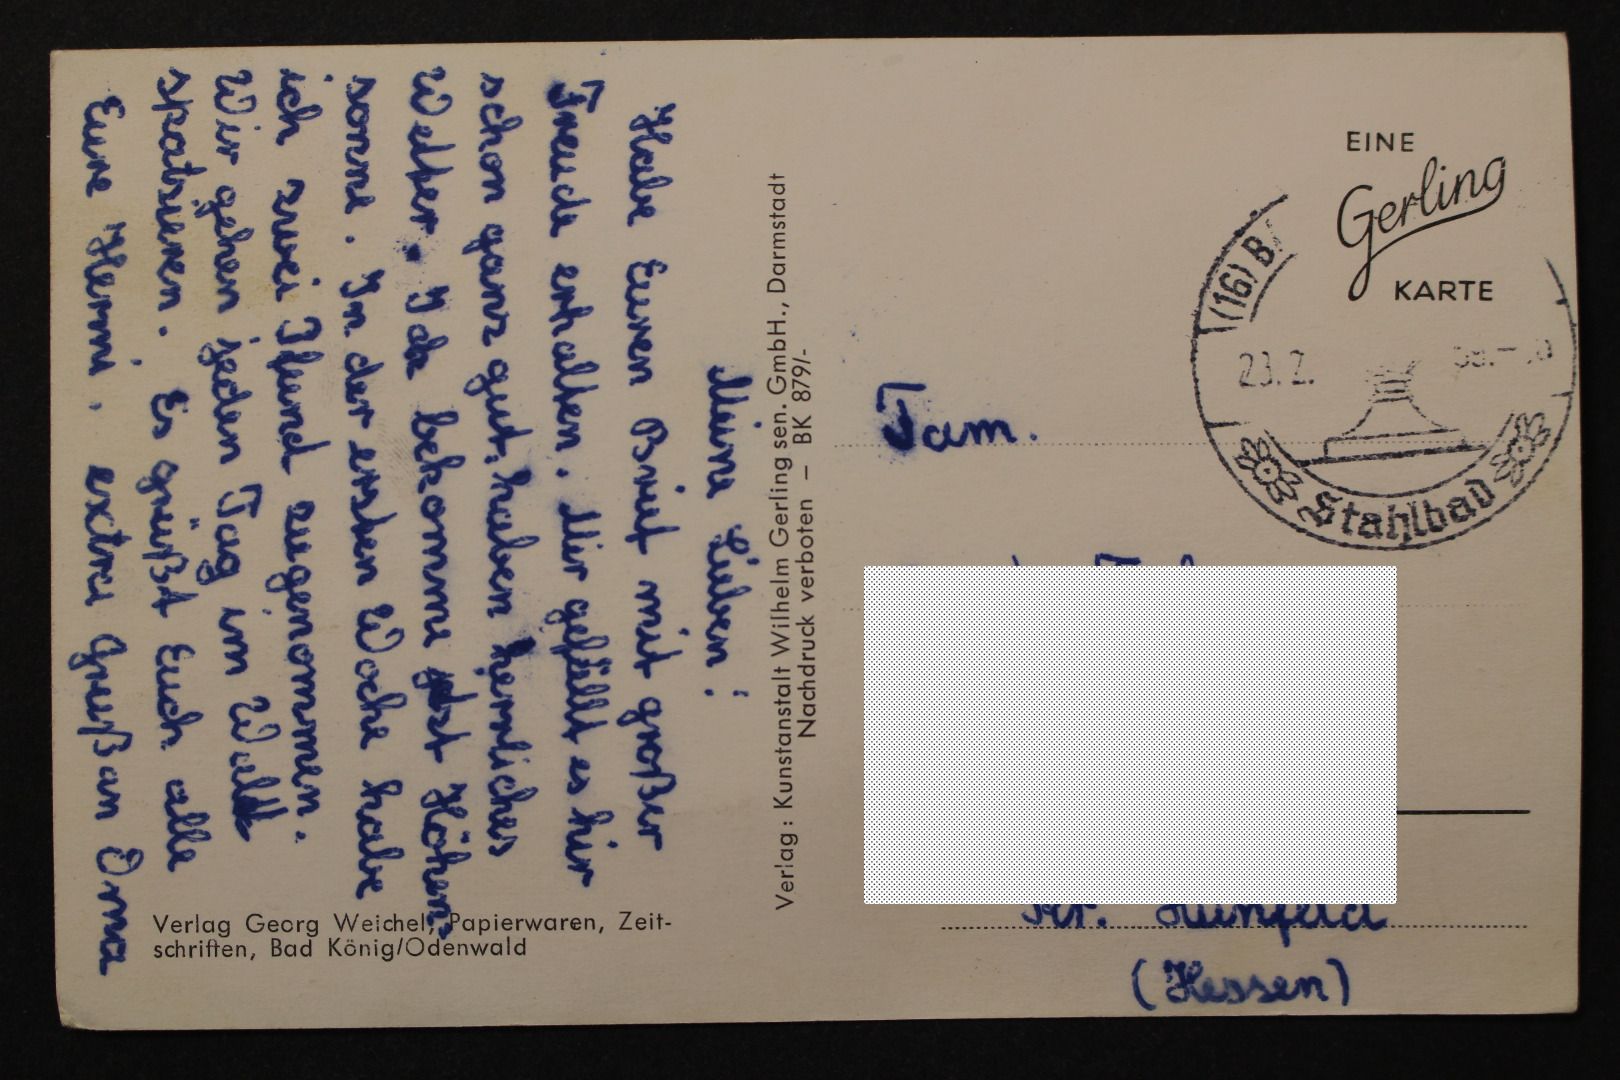 Meine Lieben!
Habe Euren Brief mit großer
Freude erhalten. Mir gefällt es hir
schon ganz gut, haben herrliches
Wetter. Ich bekomme jetzt Höhen-
sonne. In der ersten Woche habe
ich zwei Pfund zugenommen.
Wir gehen jeden Tag im Wald
spatsieren. Es grüßt Euch alle
Eure Hermi. extra Gruß an Oma
Verlag Georg Weichel, Papierwaren, Zeit-
schriften, Bad König/Odenwald
Verlag: Kunstanstalt Wilhelm Gerling sen. GmbH., Darmstadt
Nachdruck verboten – BK 879/-
EINE
Gerling
KARTE
(16) B
23.2.
Stahlbad
Fam.
Kr. Hünfeld
(Hessen)